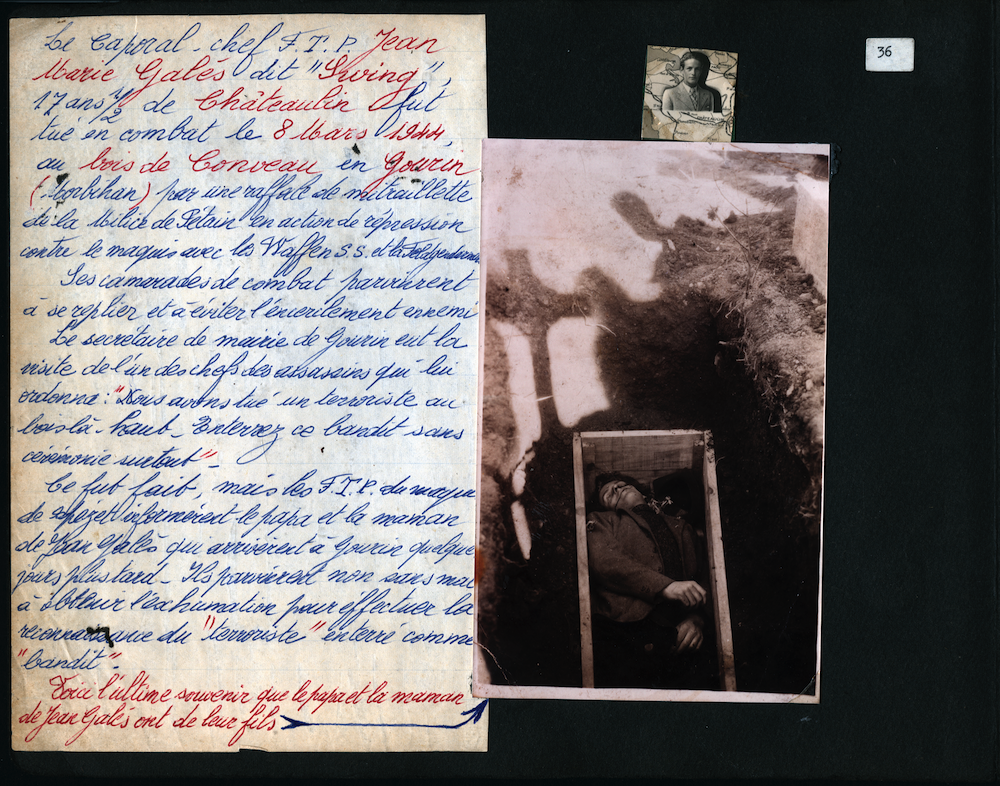 Le Caporal-chef F.T.P. Jean
Marie Galès dit "Swing",
17 ans 1/2 de Châteaulin fut
tué en combat le 8 Mars 1944,
au bois de Conveau en Gourin
(Morbihan) par une raffale de mitraillette
de la Milice de Pétain en action de répression
contre le maquis avec les Waffen S.S. et la Feldgendarmerie.
Ses camarades de combat parvinrent
à se replier et à éviter l'encerclement ennemi
Le secrétaire de mairie de Gourin eut la
visite de l'un des chefs des assassins qui lui
ordonna : "Nous avons tué un terroriste au
bois là-haut - Enterrez ce bandit sans
cérémonie surtout" -
Ce fut fait, mais les F.T.P. du maquis
de Spézet informèrent le papa et la maman
de Jean Galès qui arrivèrent à Gourin quelque
jours plus tard - Ils parvinrent non sans mal
à obtenir l'exhumation pour effectuer la
reconnaissance du "terroriste" enterré comme
"bandit" -
Voici l'ultime souvenir que le papa et la maman
de Jean Galès ont de leur fils
36